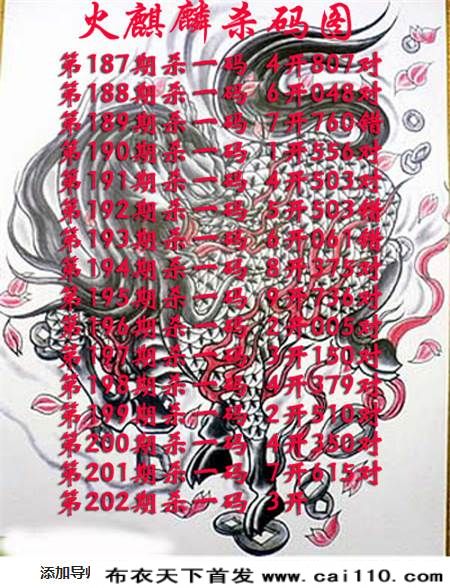 火麒麟杀码图
第187期杀一码 4开807对
第188期杀一码 6开048对
第189期杀一码 7开760错
第190期杀一码 1开556对
第191期杀一码 4开503对
第192期杀一码 5开503错
第193期杀一码 6开061错
第194期杀一码 8开375对
第195期杀一码 9开736对
第196期杀一码 2开005对
第197期杀一码 3开150对
第198期杀一码 4开379对
第199期杀一码 2开510对
第200期杀一码 4开350对
第201期杀一码 7开615对
第202期杀一码 3开
添加导
布衣天下首发 www.cai110.com